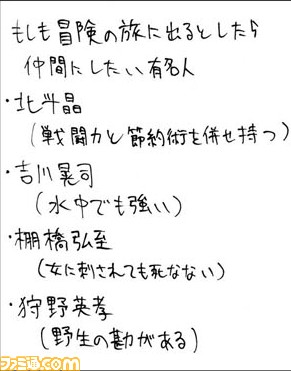 もしも冒険の旅に出るとしたら
仲間にしたい有名人
・北斗晶
(戦闘力と節約術を併せ持つ)
・吉川晃司
(水中でも強い)
・棚橋弘至
(女に刺されても死なない)
・狩野英孝
(野生の勘がある)
ファミ通.com